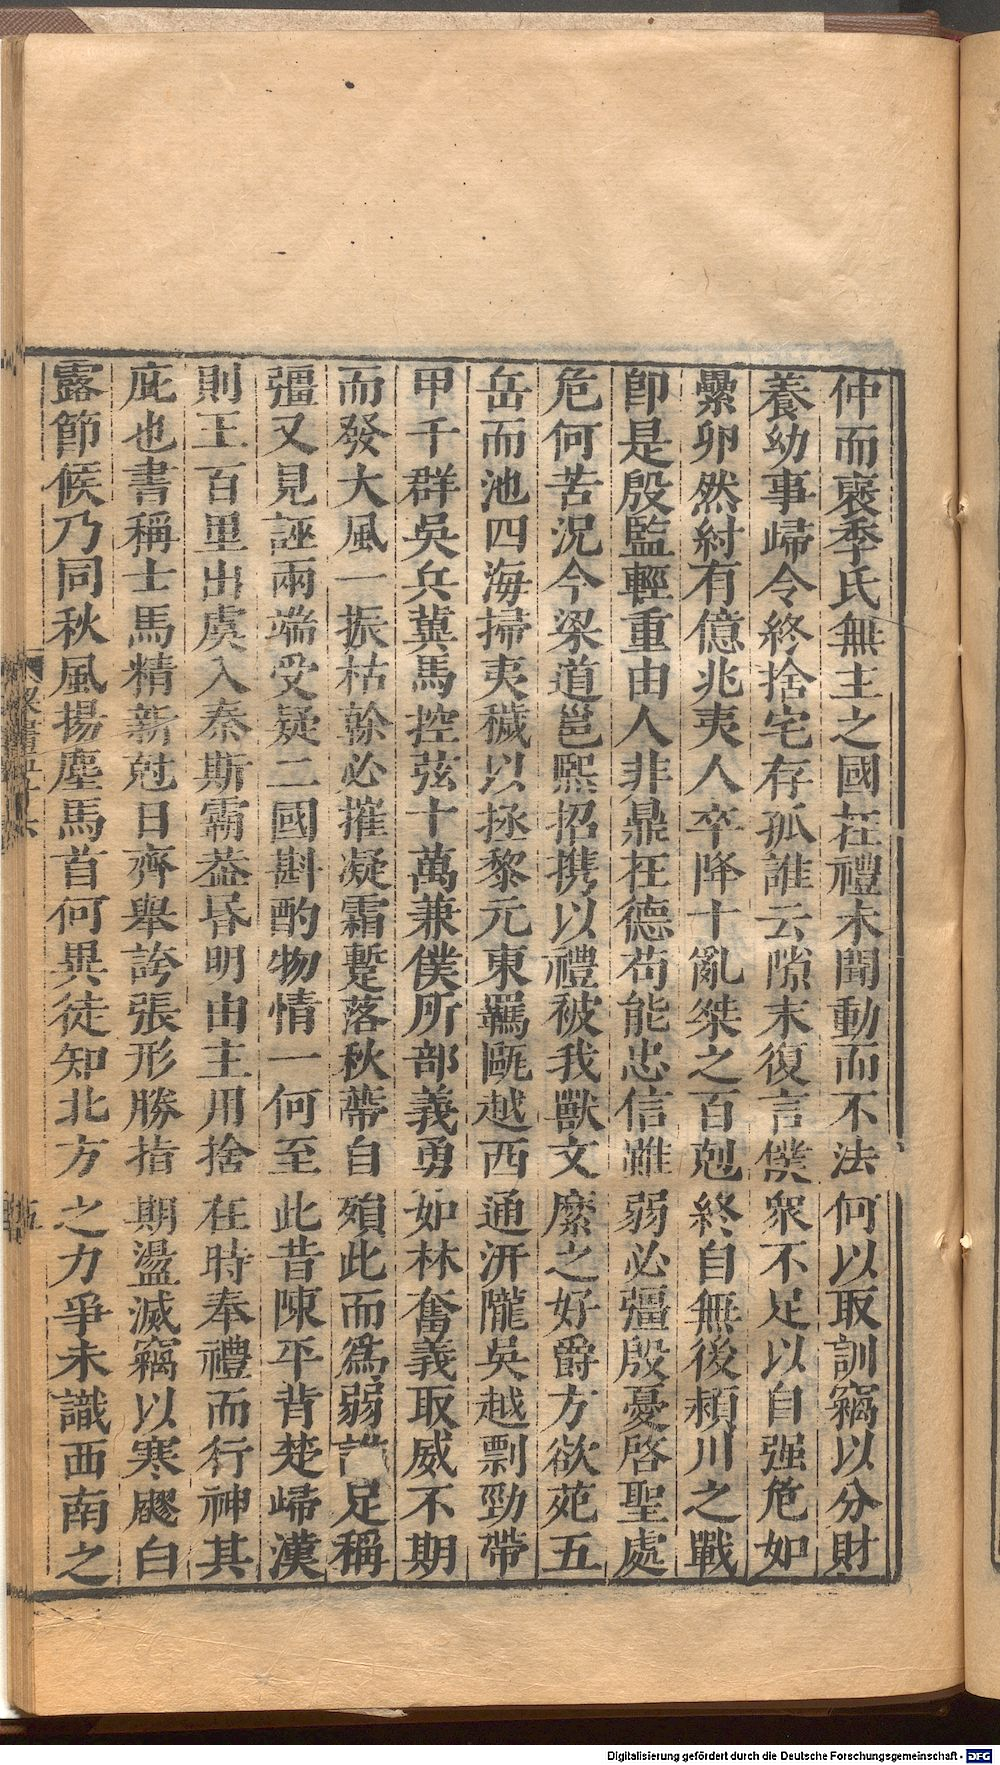 仲而褒季氏無主之國在禮未聞動而不法何以取訓竊以分財
養幼事歸令終捨宅存孤誰云隙末復言僕衆不足以自强危如
纍卵然紂有億兆夷人卒降十亂桀之百剋終自無後頴川之戰
卽是殷監輕重由人非鼎在德苟能忠信雖弱必彊殷憂啓聖處
危何苦況今梁道邕熙招携以禮被我獸文縻之好爵方欲苑五
岳而池四海掃夷穢以拯黎元東羈甌越西通汧隴吳越剽勁帶
甲千群吳兵冀馬控弦十萬兼僕所部義勇如林奮義取威不期
而發大風一振枯榦必摧凝霜蹔落秋蔕自殞此而爲弱誰足稱
彊又見誣兩端受疑二國斟酌物情一何至此昔陳平背楚歸漢
則王百里出虞入秦斯霸葢昏明由主用捨在時奉禮而行神其
庇也書稱士馬精新尅日齊舉誇張形勝指期盪滅竊以寒飂白
露節候乃同秋風揚塵馬首何異徒知北方之力爭未識西南之
Digitalisierung gefördert durch die Deutsche Forschungsgemeinschaft - DFG